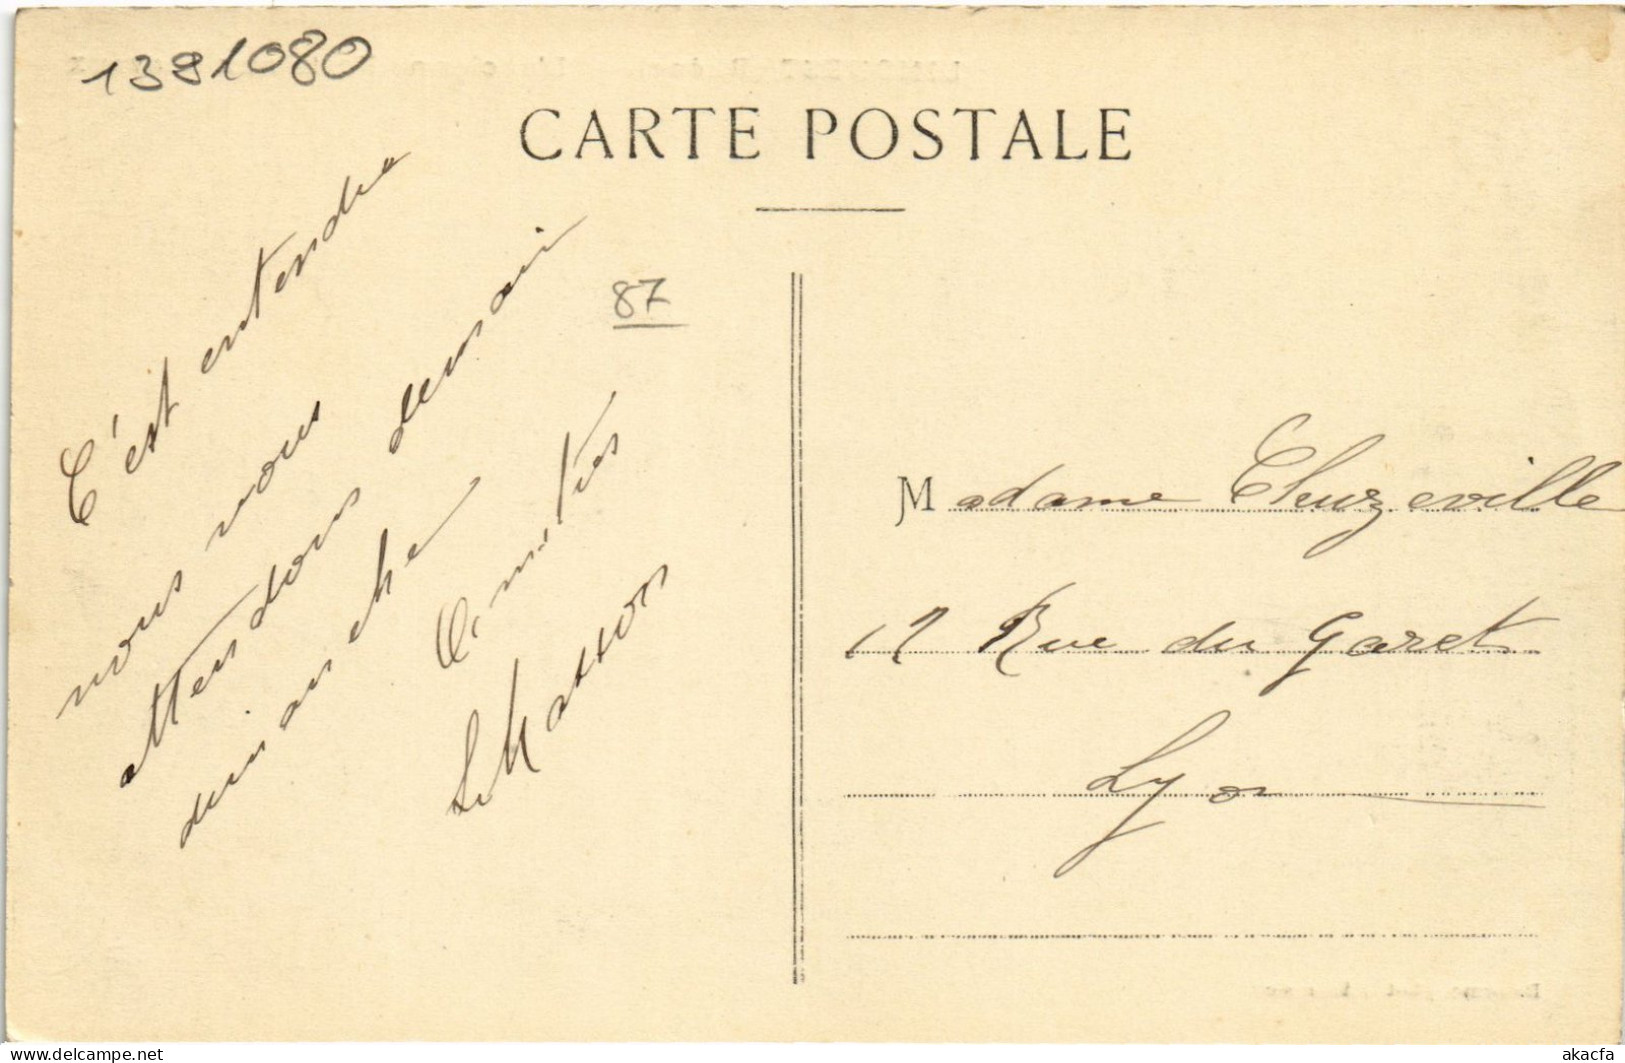 1391080
CARTE POSTALE
87
C'est entendu
nous vous
attendons demain
dimanche
Amitiés
Masson
Madame Chuzeville
12 Rue du Garet
Lyon
akacfa